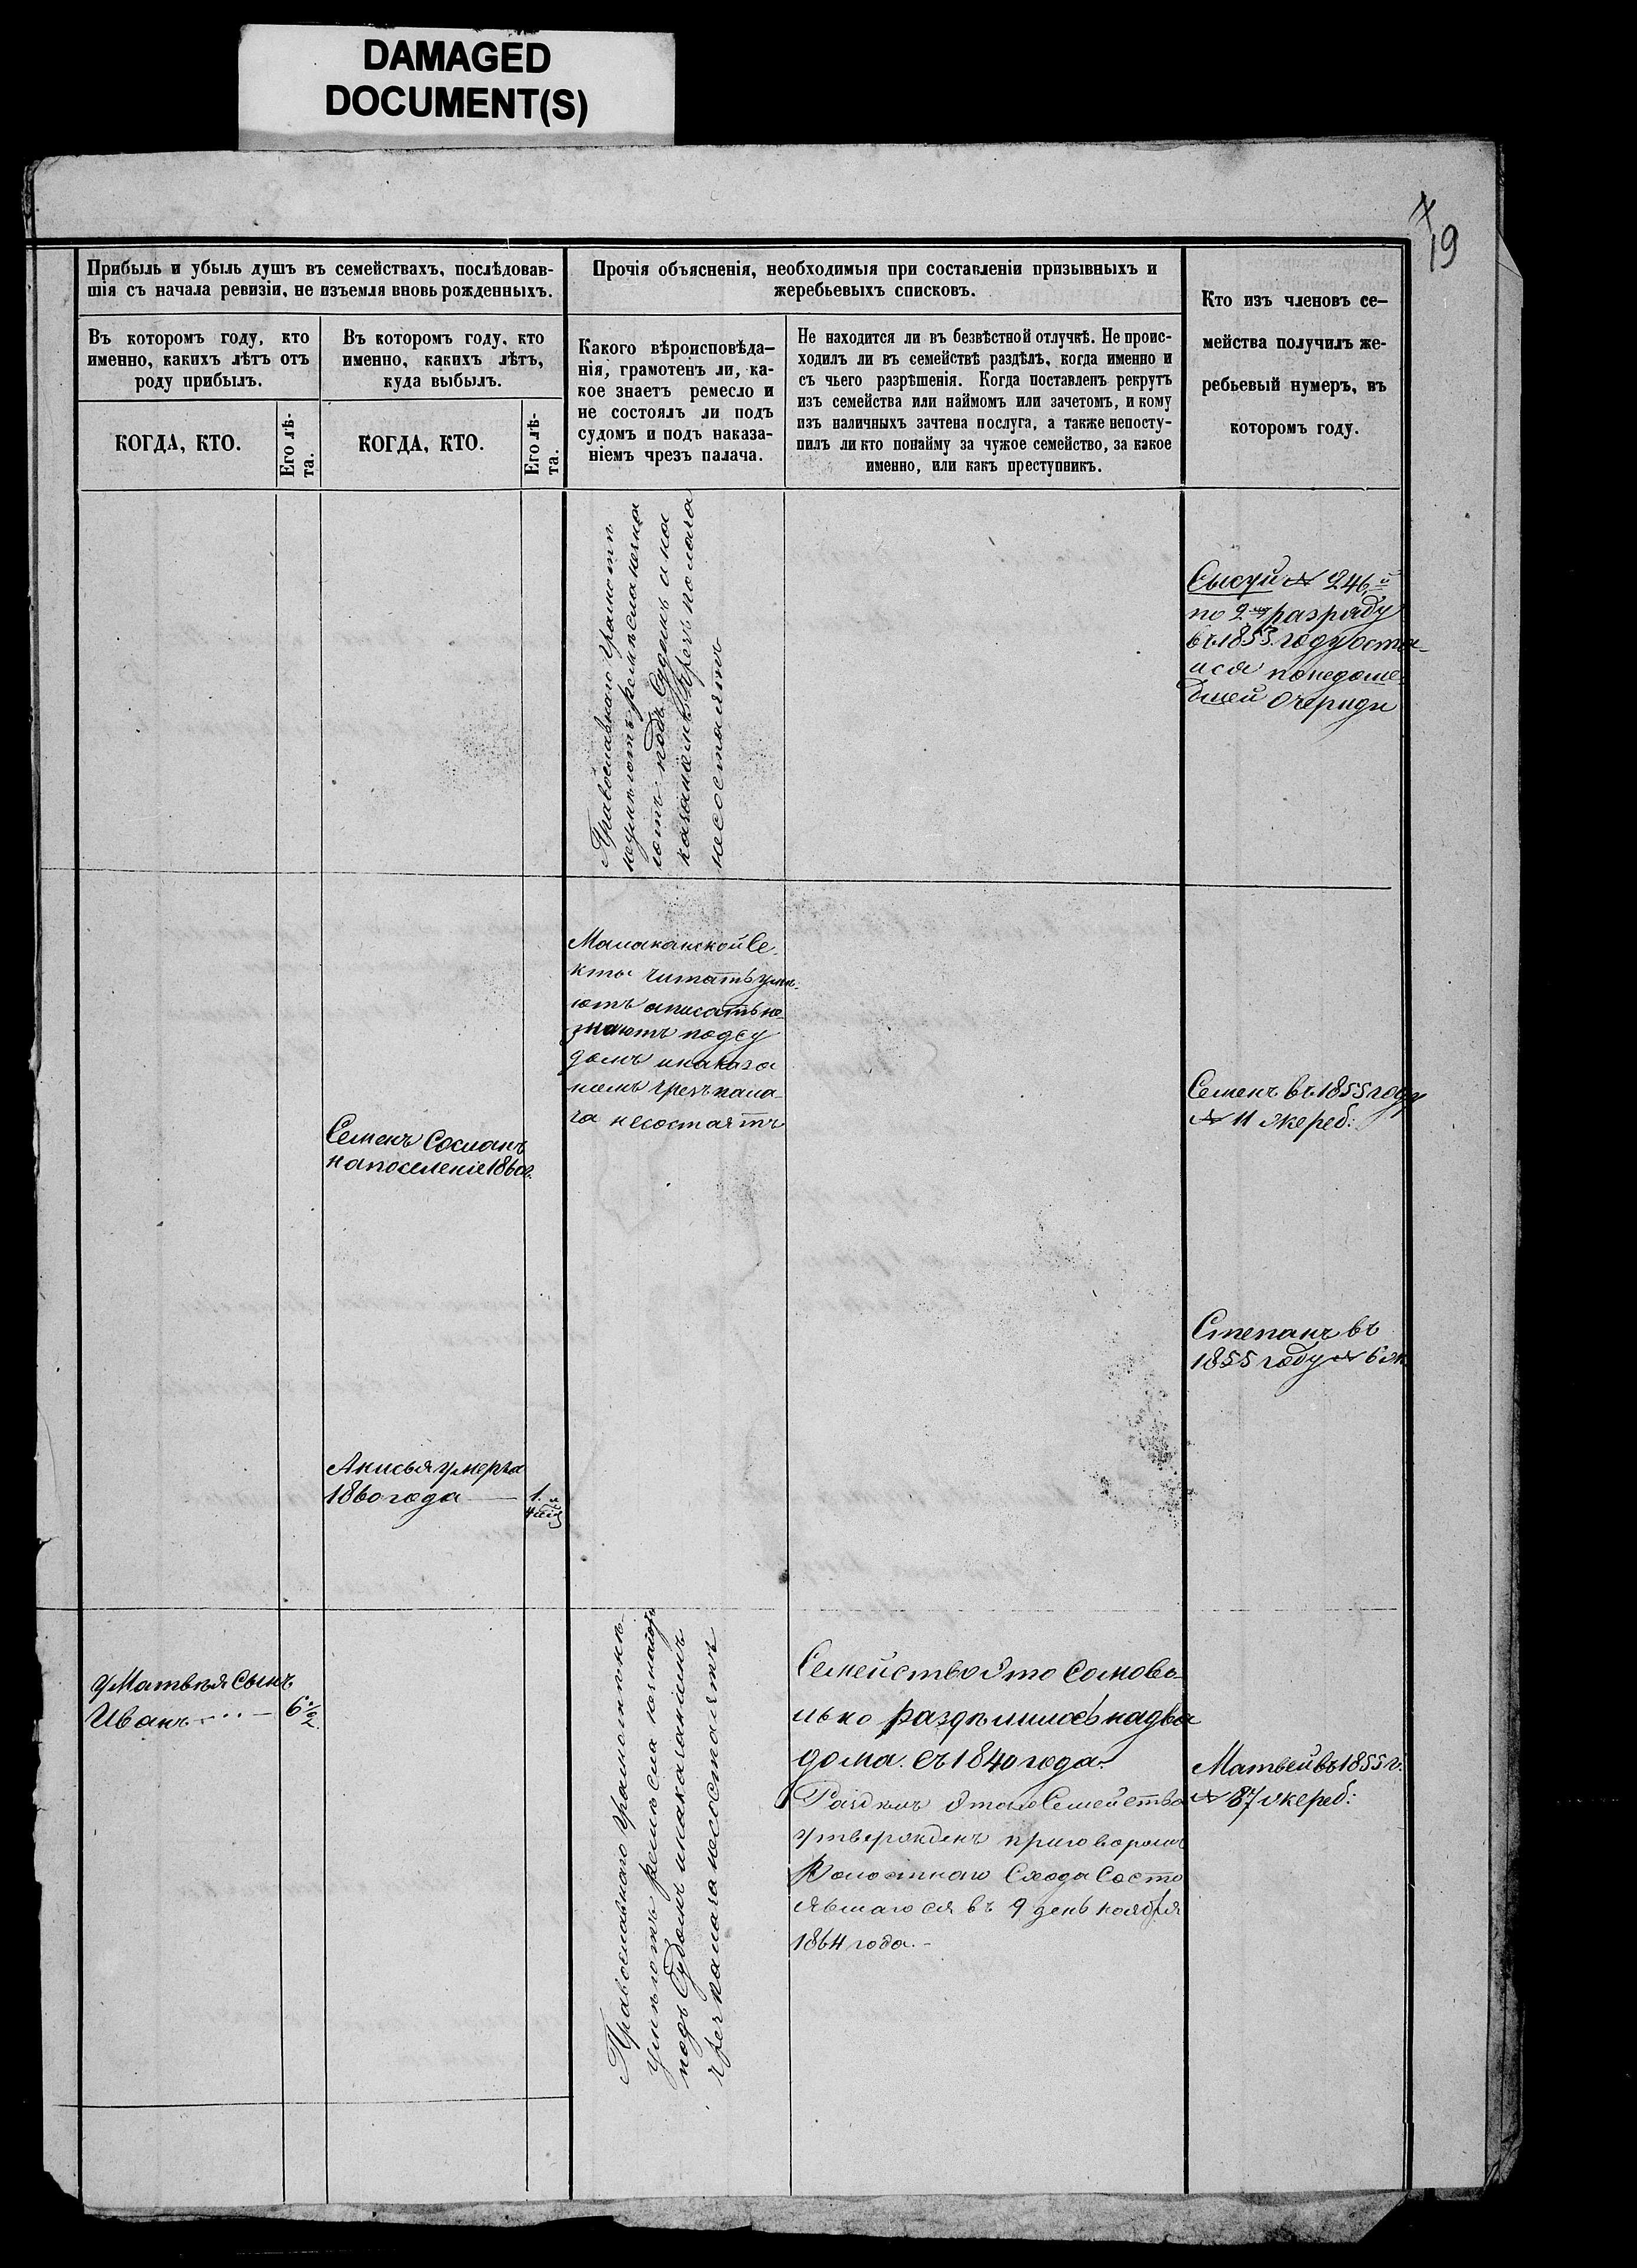 DAMAGED
DOCUMENT(S)
19
Прибыль и убыль душъ въ семействахъ, послѣдовав-
шія съ начала ревизіи, не изъемля вновь рожденныхъ.
Прочія объясненія, необходимыя при составленіи призывныхъ и
жеребьевыхъ списковъ.
Кто изъ членовъ се-
мейства получилъ же-
ребьевый нумеръ, въ
которомъ году.
Въ которомъ году, кто
именно, какихъ лѣтъ отъ
роду прибылъ.
Въ которомъ году, кто
именно, какихъ лѣтъ,
куда выбылъ.
Какого вѣроисповѣда-
нія, грамотенъ ли, ка-
кое знаетъ ремесло и
не состоялъ ли подъ
судомъ и подъ наказа-
ніемъ чрезъ палача.
Не находится ли въ безвѣстной отлучкѣ. Не проис-
ходилъ ли въ семействѣ раздѣлъ, когда именно и
съ чьего разрѣшенія. Когда поставленъ рекрутъ
изъ семейства или наймомъ или зачетомъ, и кому
изъ наличныхъ зачтена послуга, а также непосту-
пилъ ли кто понайму за чужое семейство, за какое
именно, или какъ преступникъ.
КОГДА, КТО.
Его лѣ-
та.
КОГДА, КТО.
Его лѣ-
та.
Православнаго грамотѣ
неумѣютъ ремесла незна
ютъ подъ Судомъ и на
казаніемъ чрезъ палача
несостоятъ
Сысуй № 246й
по 2му разряду
въ 1853 году оста
лся понедоше
дшей очереди
Малаканской Се-
кты читать умѣ-
ютъ аписать не
знаютъ подсу
домъ инаказа
ніемъ чрезъ пала-
ча несостоятъ
Семенъ Сосланъ
напоселеніе 1860г.
Семенъ въ 1855 году
№ 11 жереб:
Степанъ въ
1855 году № 6 ж
Анисья умерла
1860 года — 1.
уМатвѣя сынъ
Иванъ — 6 1/2
Православнаго грамотѣ не
умѣютъ ремесла незнаютъ
подъ Судомъ инаказаніемъ
чрез палача несостоятъ
Семейство это самово-
льно раздѣлилось надва
дома. съ 1840 года.
Раздѣлъ этаго Семейства
утвержденъ приговоромъ
Волостнаго Схода Состо
явшагося въ 9 день ноября
1864 года.-
Матвей въ 1855 г.
№ 87 жереб: